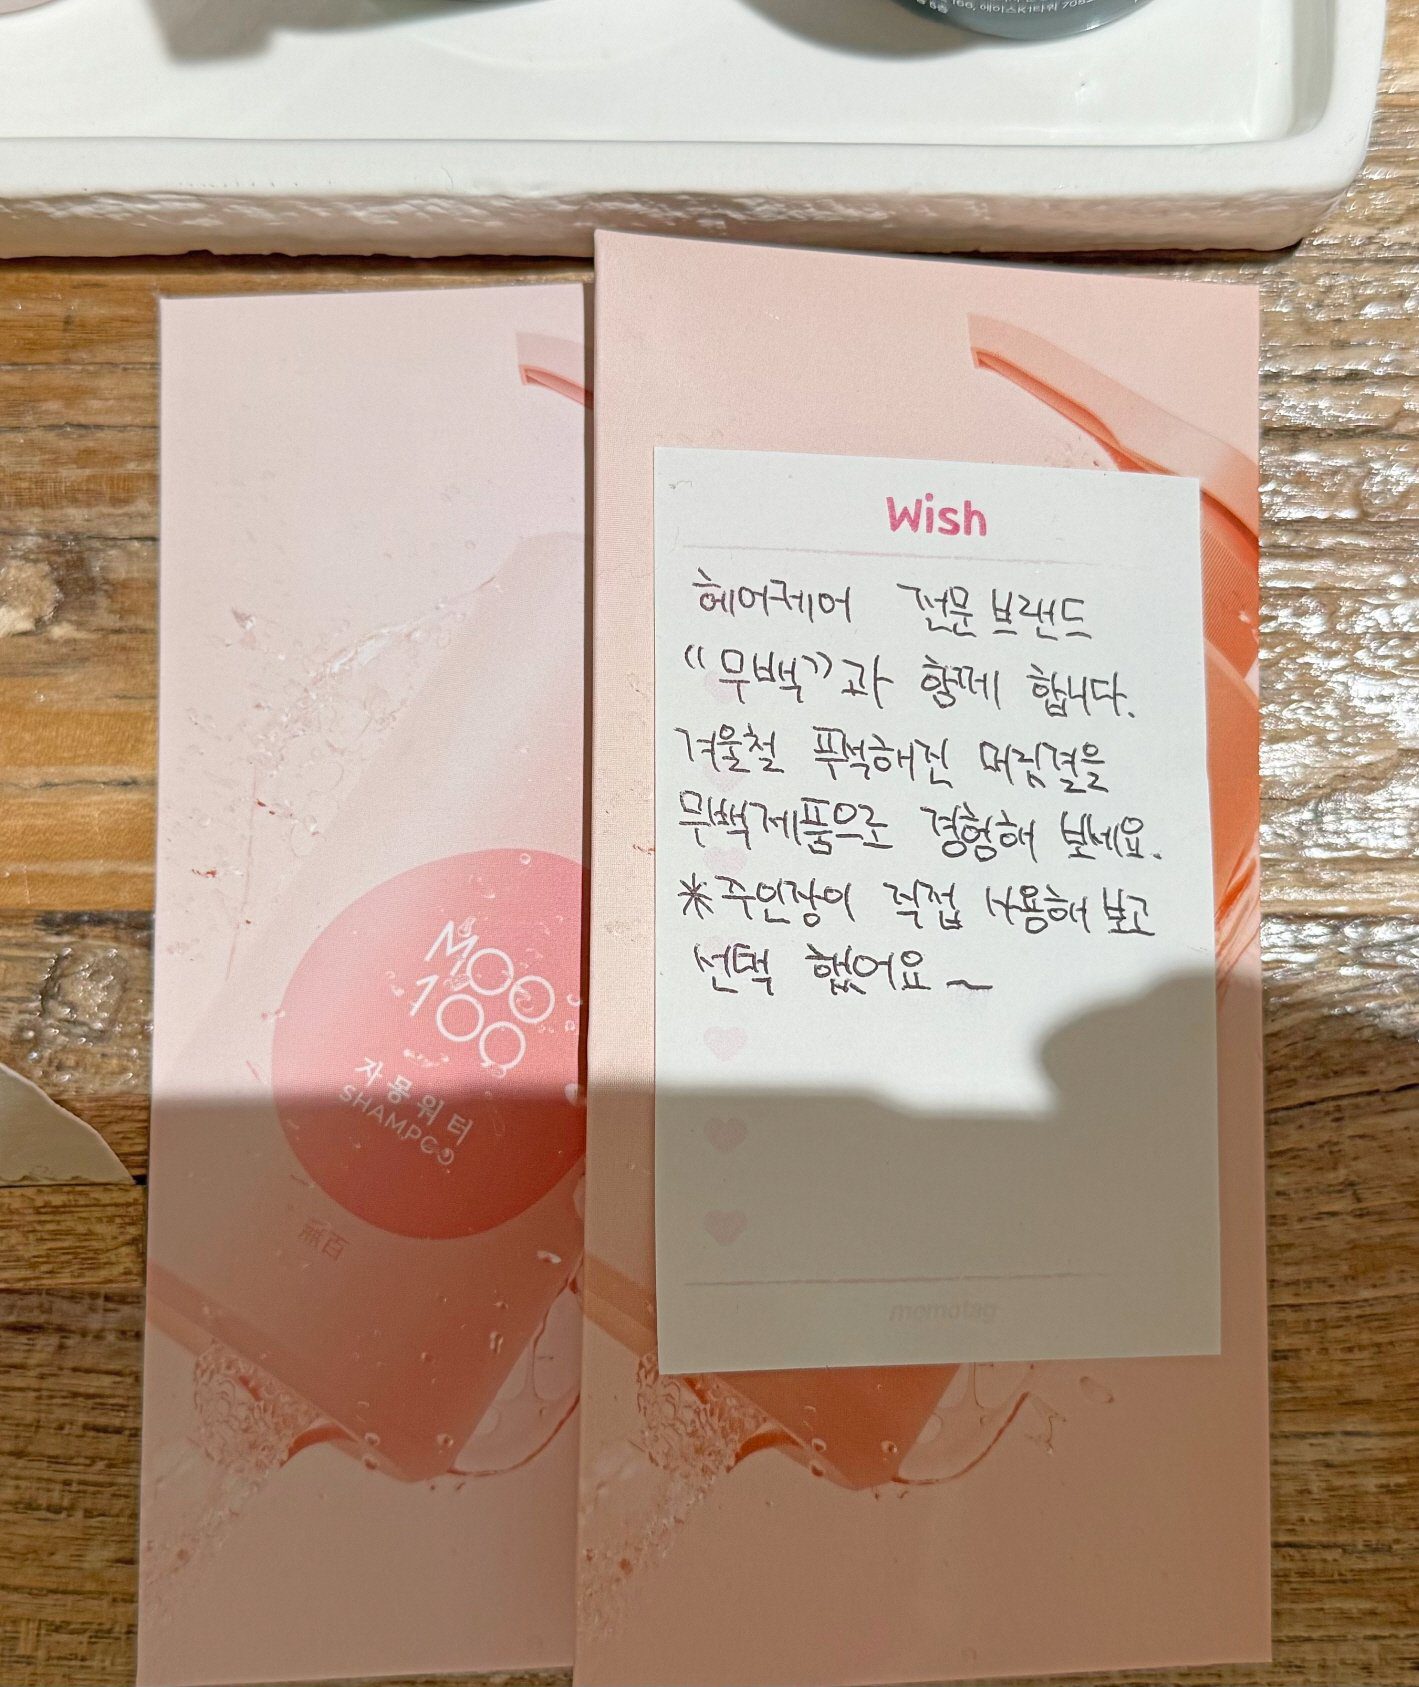 MOO
100
자몽워터
SHAMPOO
無百
Wish
헤어케어 전문 브랜드
"무백"과 함께 합니다.
겨울철 푸석해진 머릿결을
무백제품으로 경험해 보세요.
*주인장이 직접 사용해 보고
선택 했어요~
memotag